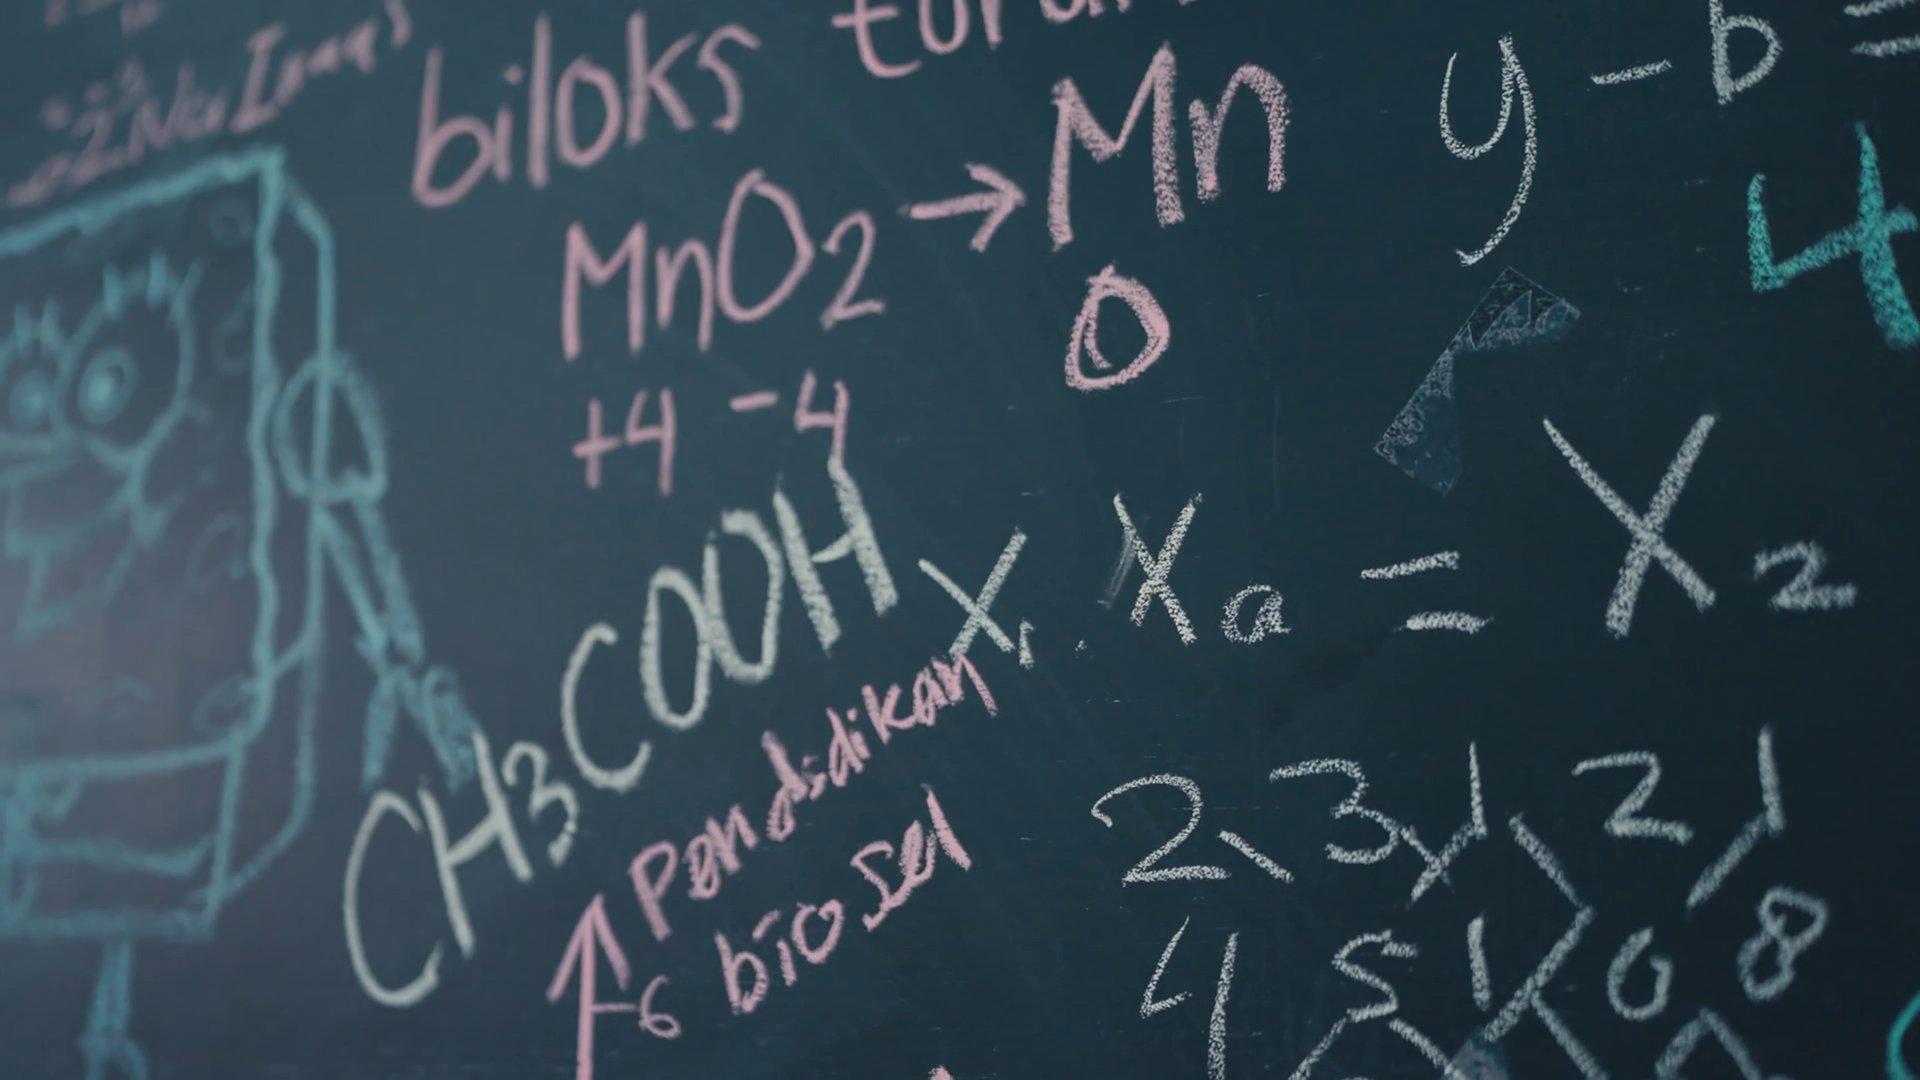 biloks
MnO2 → Mn
+4 -4
0
y - b =
4
CH3COOH
X1 . Xa = X2
pendidikan
biosel
6
2 3 1 2 1
4 5 1 0 8